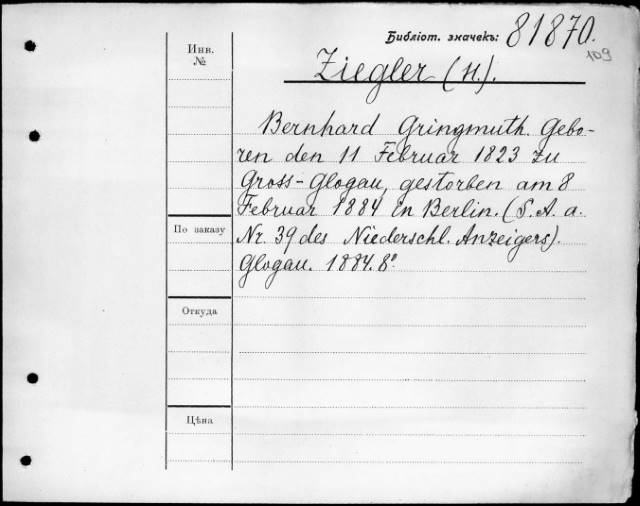 Библіот. значекъ: 81870.
109
Инв.
№
Ziegler (H.).
Bernhard Gringmuth. Gebo-
ren den 11 Februar 1823 zu
Gross-Glogau, gestorben am 8
Februar 1884 in Berlin. (S. A. a.
По заказу
Nr. 39 des Niederschl. Anzeigers).
Glogau. 1884. 8º.
Откуда
Цѣна